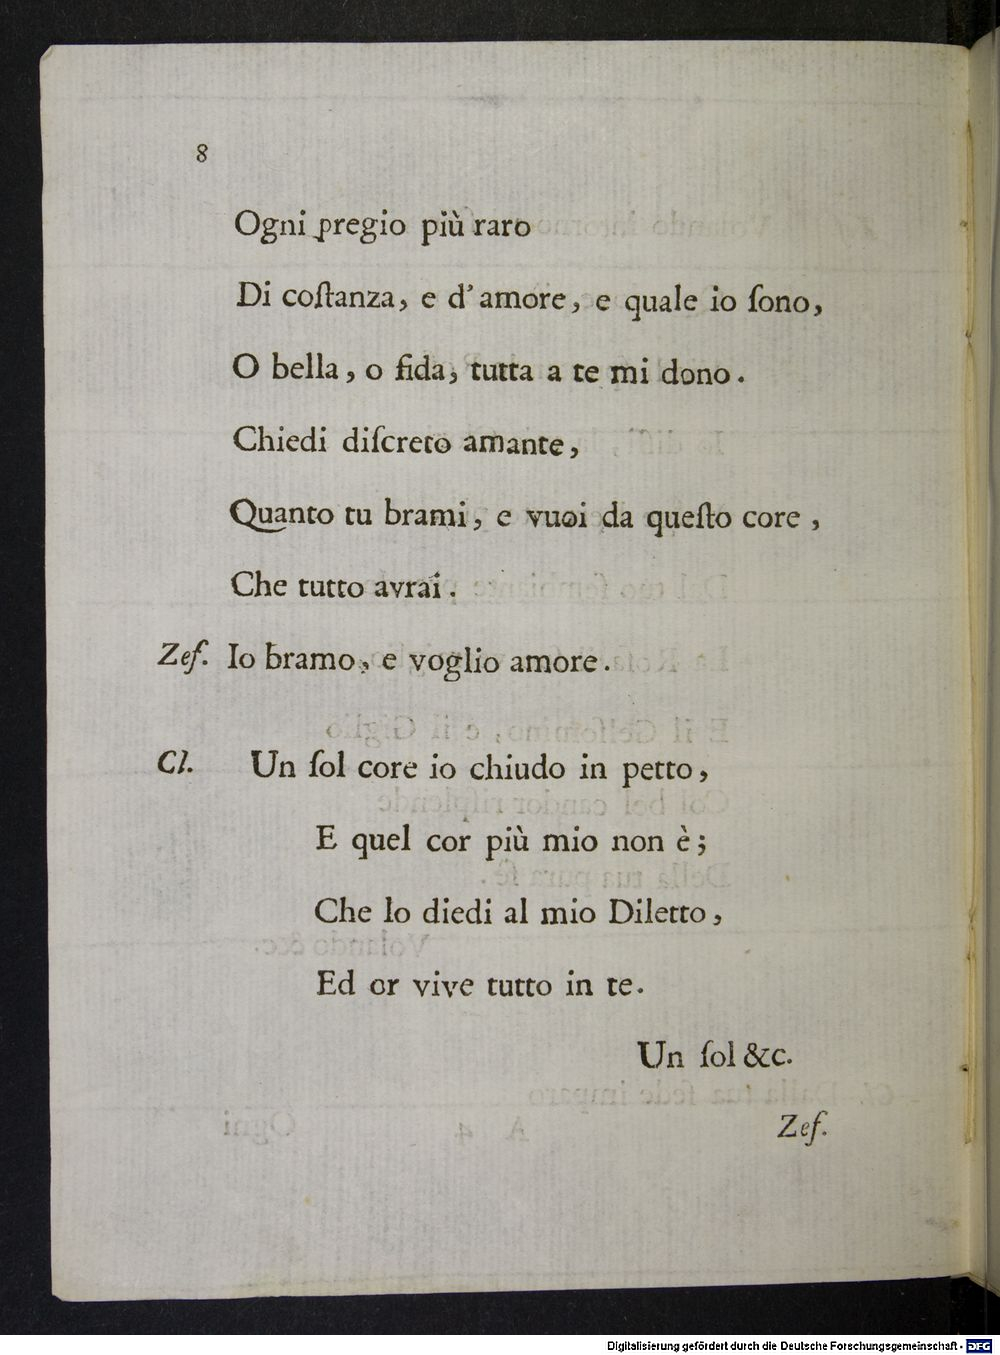 8
Ogni pregio più raro
Di coſtanza, e d'amore, e quale io ſono,
O bella, o fida, tutta a te mi dono.
Chiedi diſcreto amante,
Quanto tu brami, e vuoi da queſto core,
Che tutto avrai.
Zeſ. Io bramo, e voglio amore.
Cl. Un ſol core io chiudo in petto,
E quel cor più mio non è;
Che lo diedi al mio Diletto,
Ed or vive tutto in te.
Un ſol &c.
Zeſ.
Digitalisierung gefördert durch die Deutsche Forschungsgemeinschaft - DFG